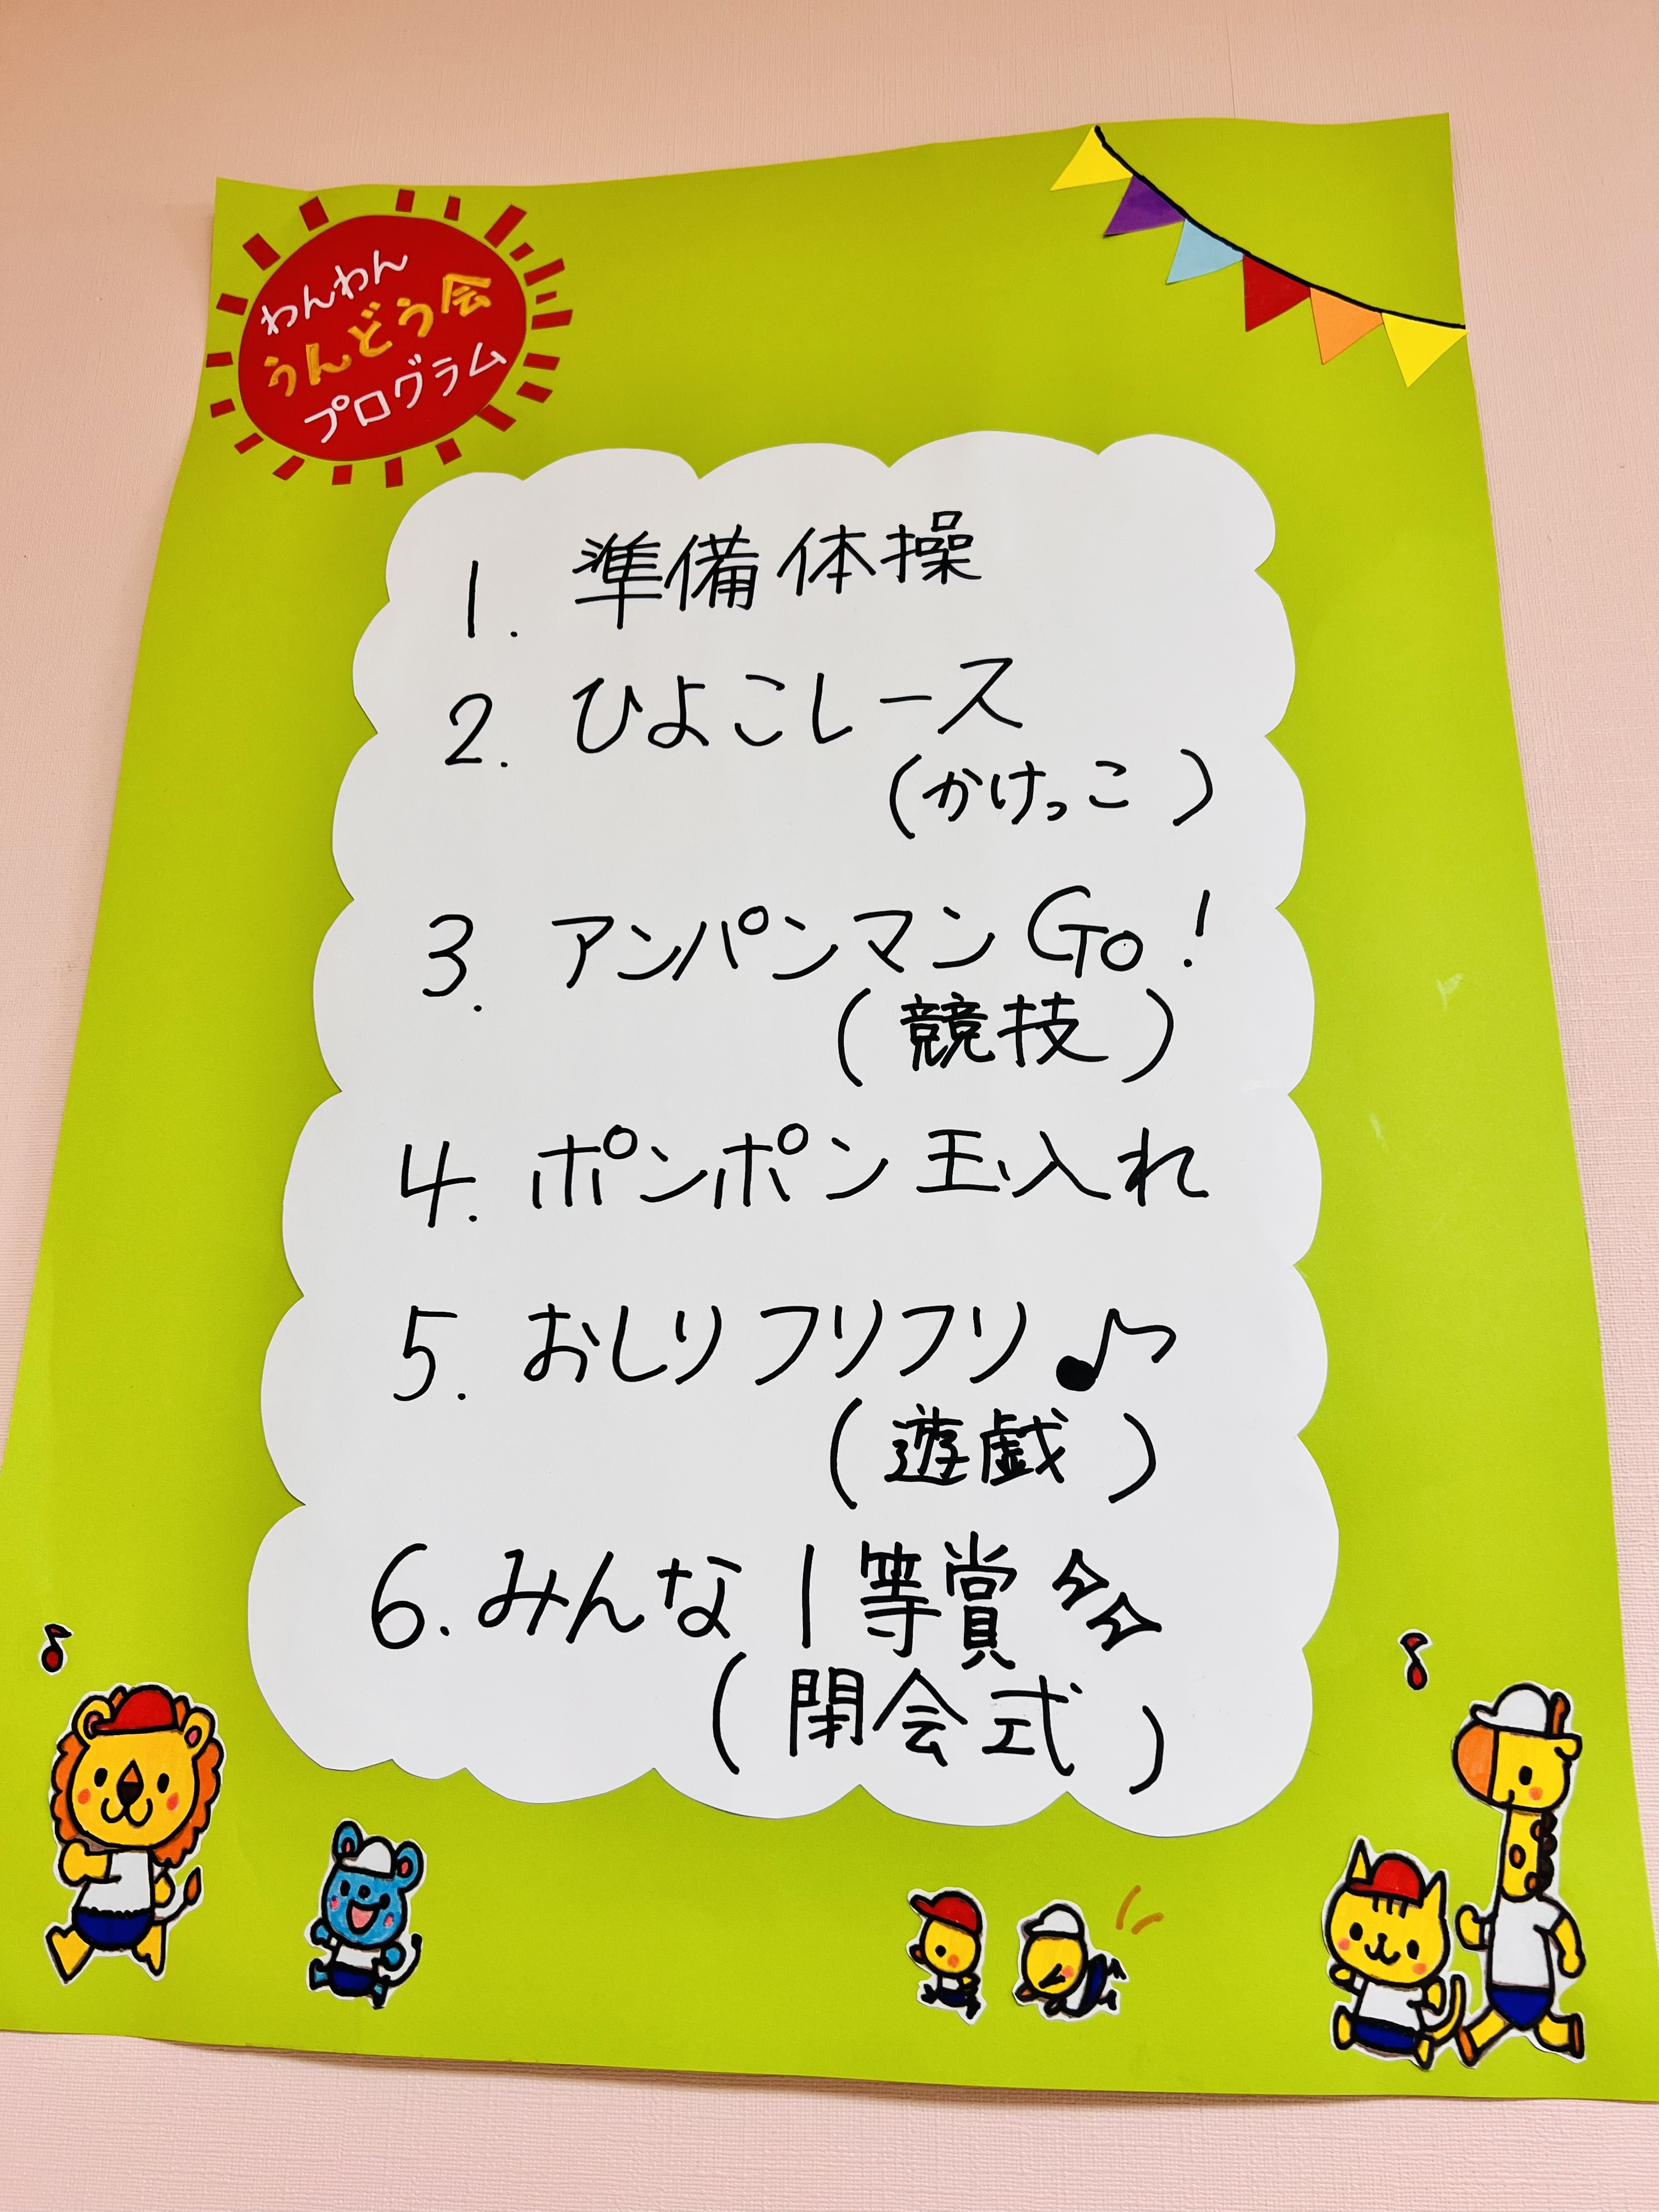 わんわん
うんどう会
プログラム
1. 準備体操
2. ひよこレース
(かけっこ)
3. アンパンマンGo!
(競技)
4. ポンポン玉入れ
5. おしりフリフリ♪
(遊戯)
6. みんな1等賞
(閉会式)